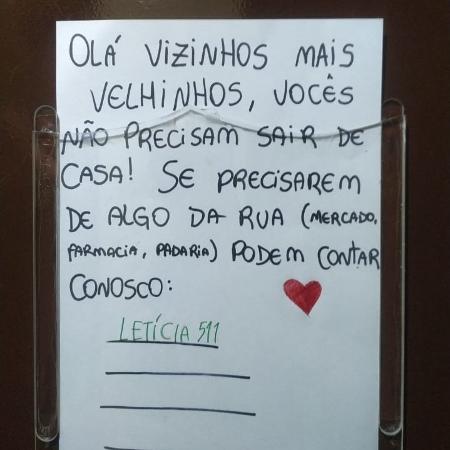 OLÁ VIZINHOS MAIS
VELHINHOS, VOCÊS
NÃO PRECISAM SAIR DE
CASA! SE PRECISAREM
DE ALGO DA RUA (MERCADO,
FARMACIA, PADARIA) PODEM CONTAR
CONOSCO:
LETÍCIA 511